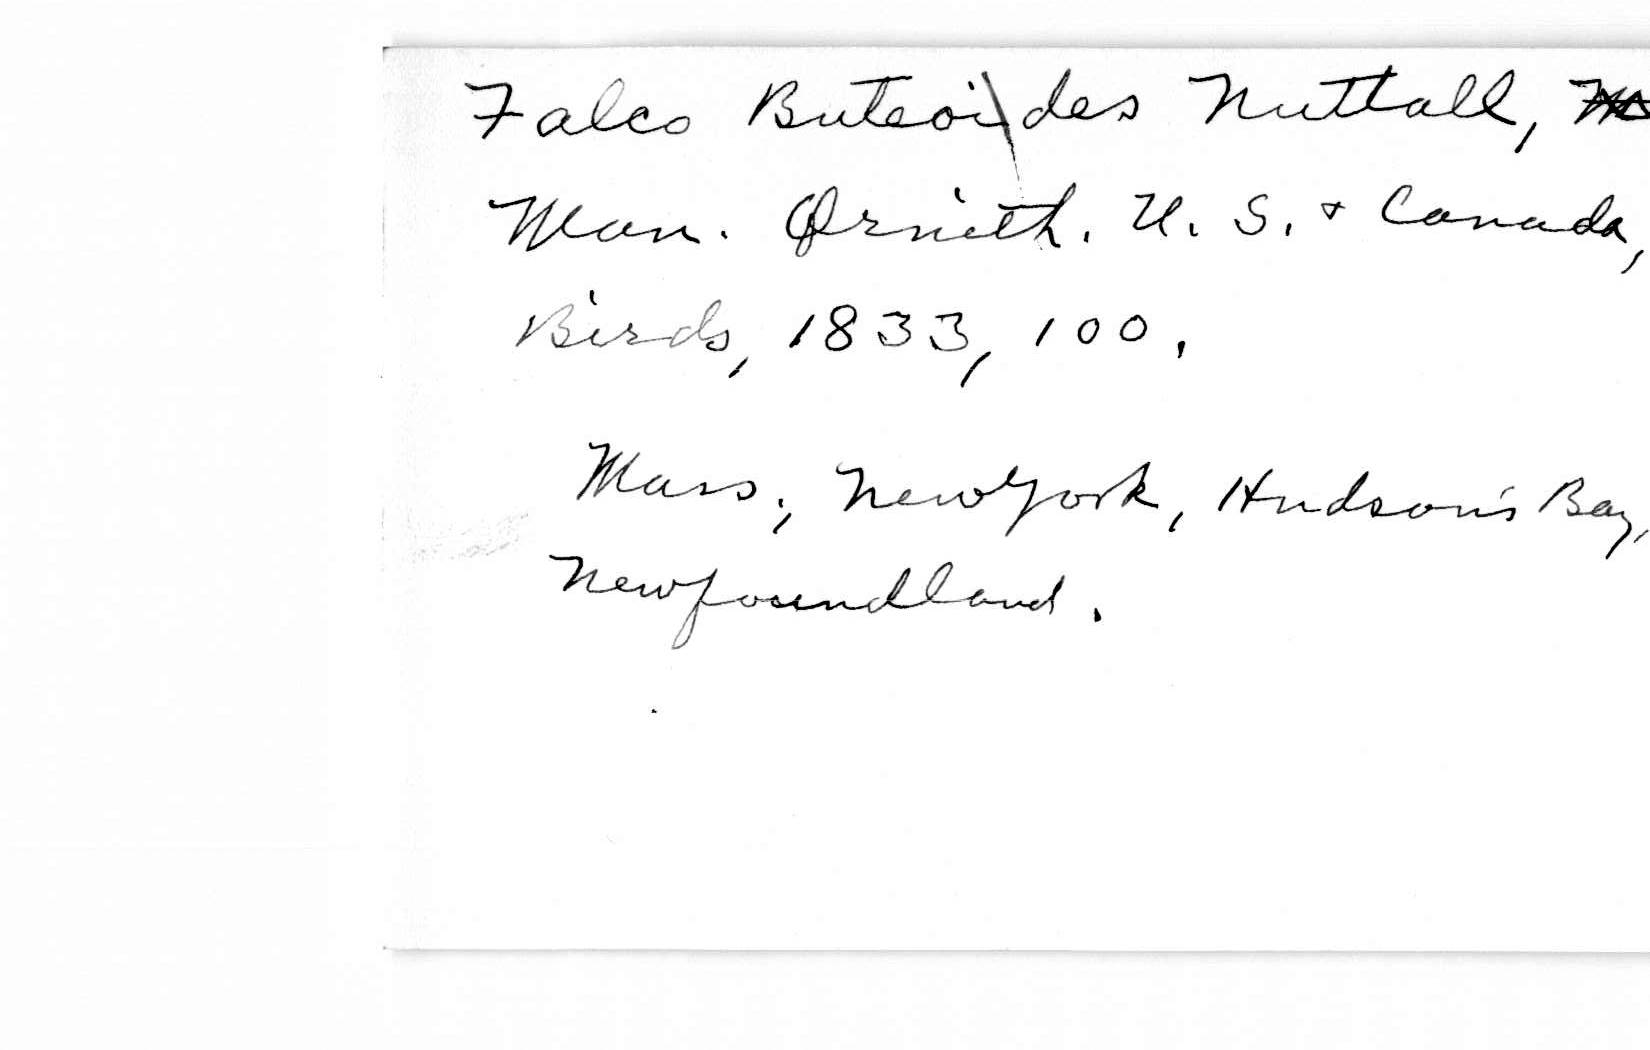 Falco Buteoides Nuttall,
Man. Ornith. U. S. & Canada,
Birds, 1833, 100.
Mass., New York, Hudson's Bay,
Newfoundland.